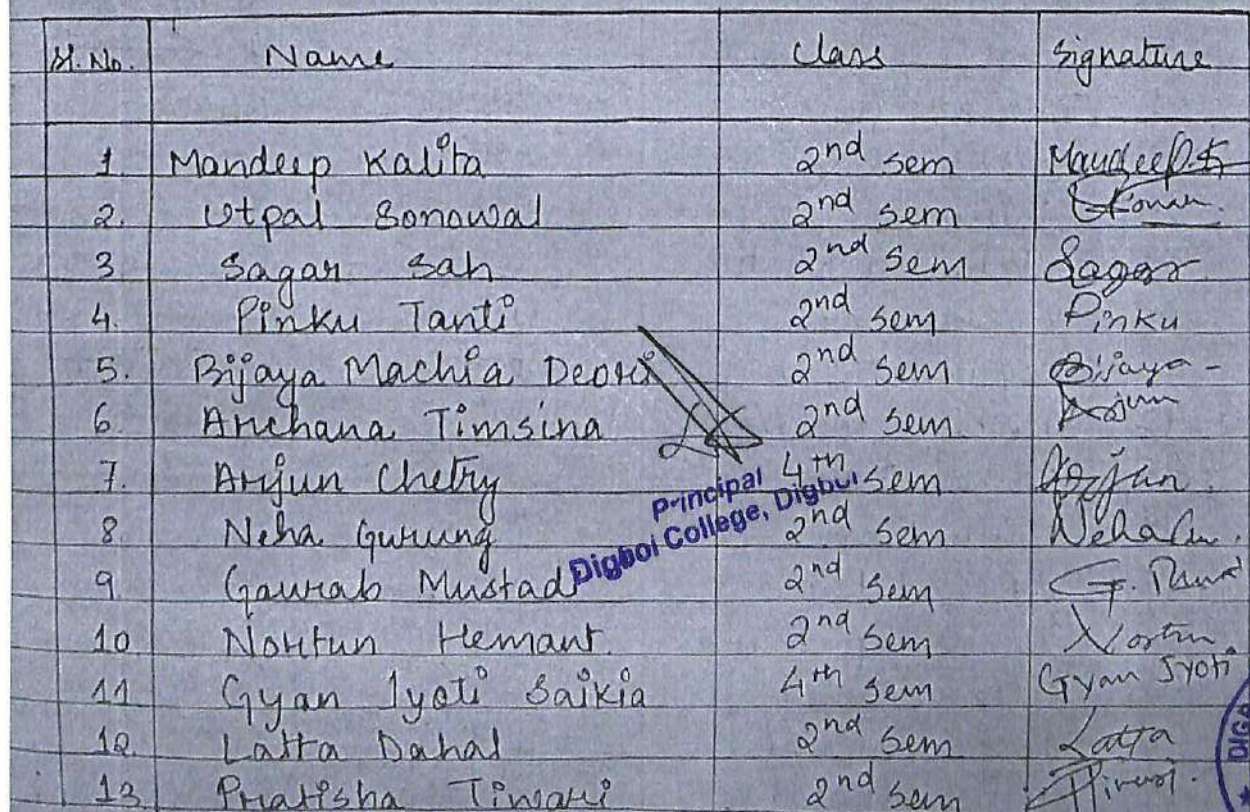 Sl. No. Name Class Signature
1 Mandeep Kalita 2nd Sem Mandeep
2. Utpal Sonowal 2nd Sem
3 Sagar Sah 2nd Sem Sagar
4. Pinku Tanti 2nd Sem Pinku
5. Bijaya Machia Deori 2nd Sem Bijaya
6. Archana Timsina 2nd Sem
7. Arjun Chetry 4th Sem Arjun
Principal
8. Neha Gurung 2nd Sem Neha
Digboi College, Digboi
9 Gaurab Mustad 2nd Sem G.
10 Nortun Hemant. 2nd Sem Nortun
11 Gyan Jyoti Saikia 4th Sem Gyan Jyoti
12 Latta Dahal 2nd Sem Latta
13 Pratisha Tiwari 2nd Sem Tiwari